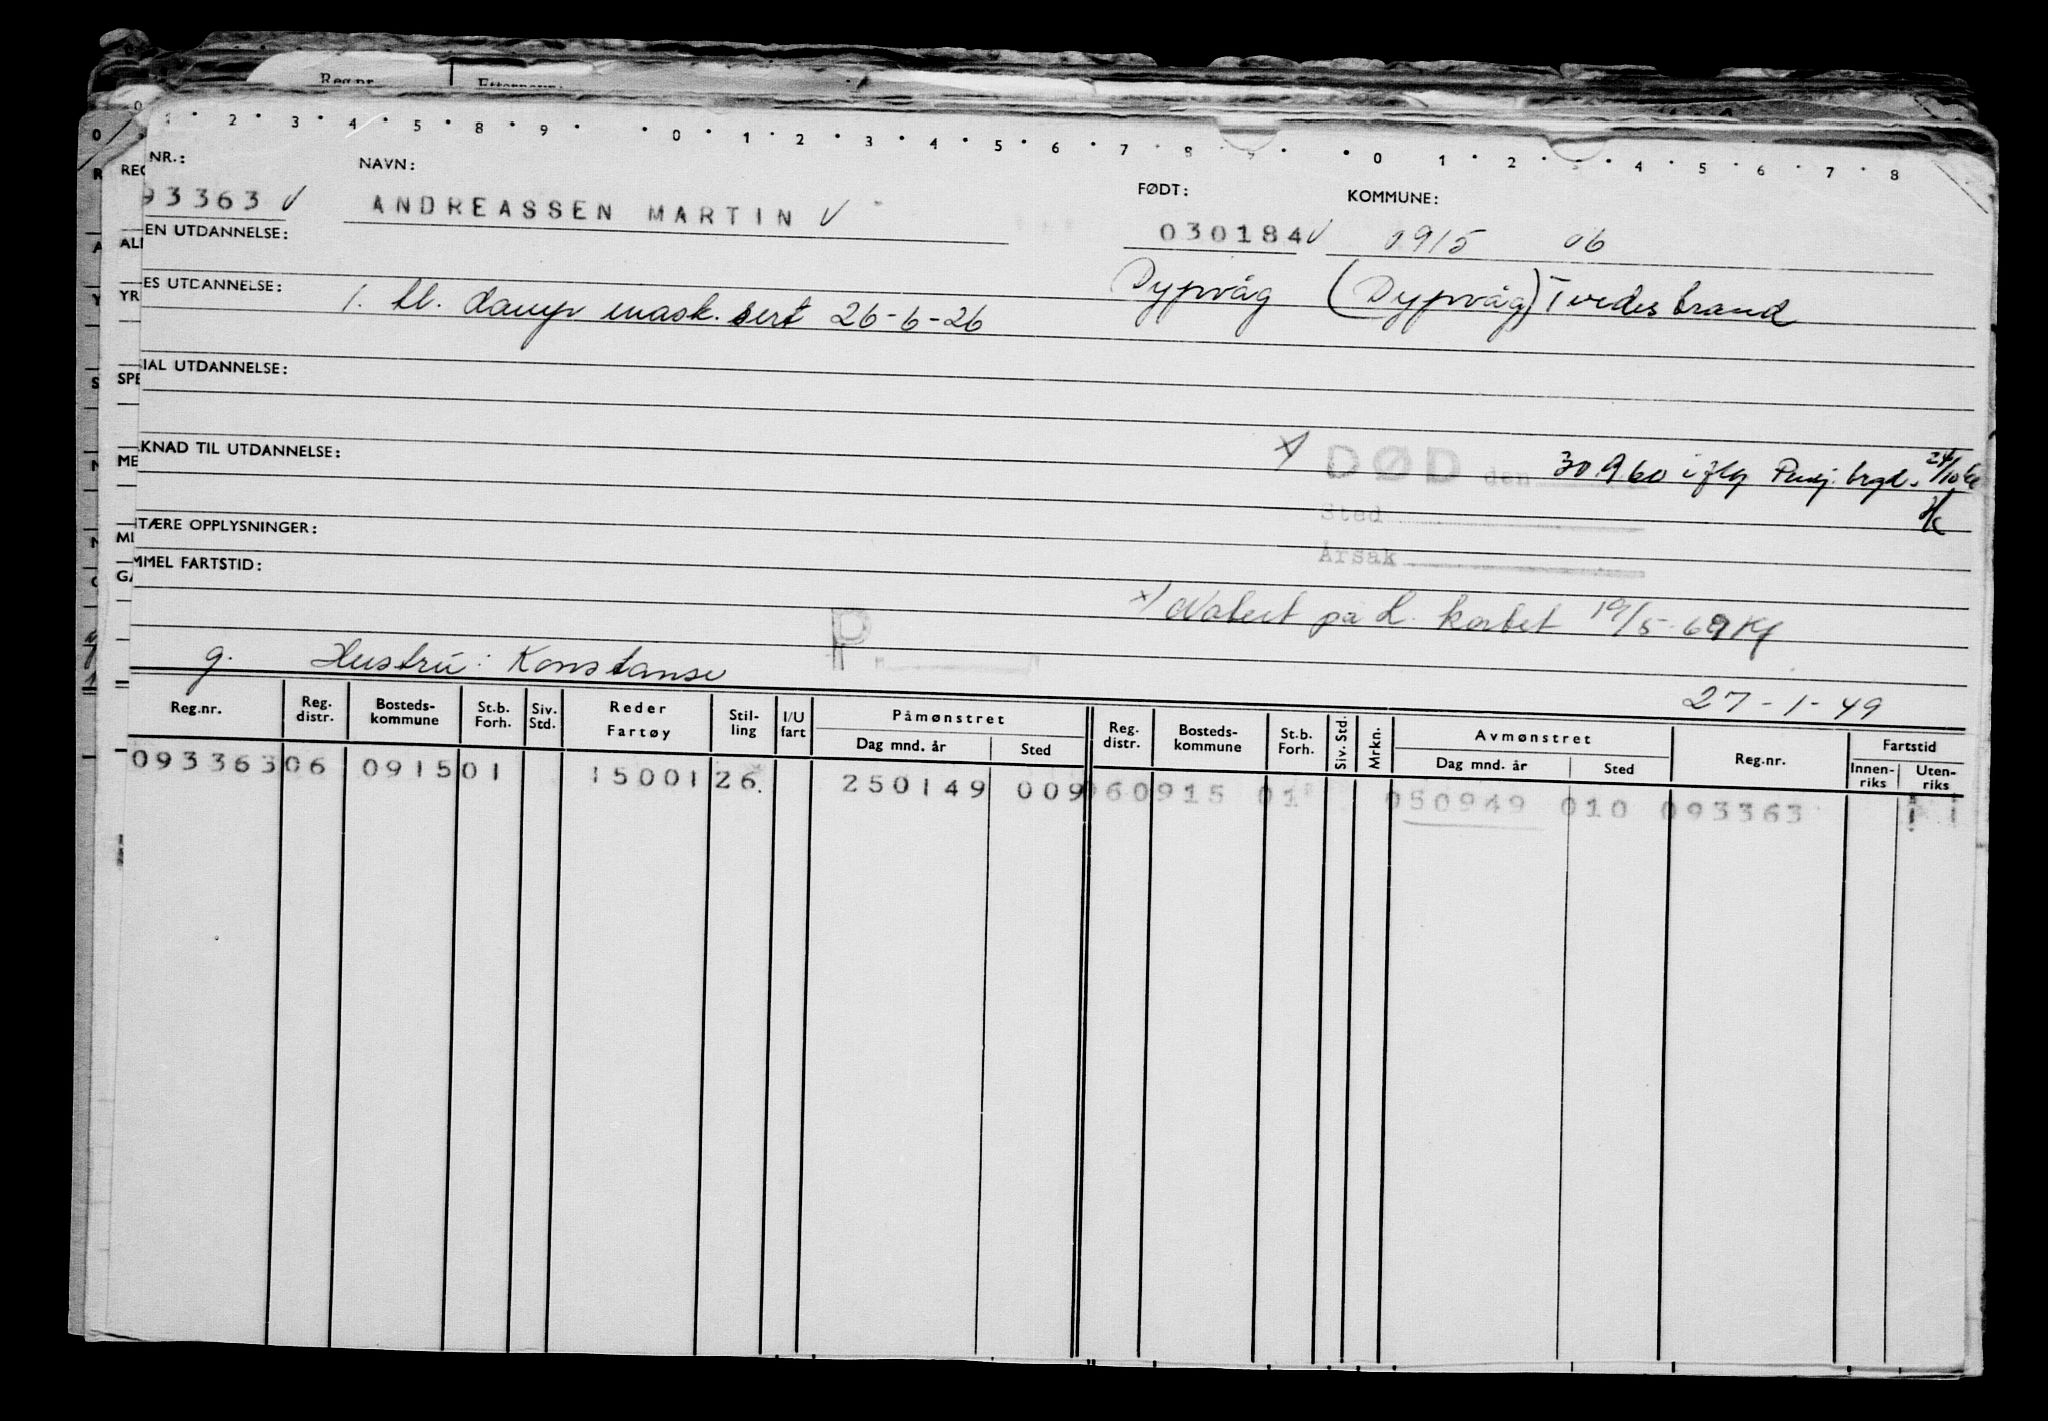 Reg.nr. Etternavn:
0 1 2 3 4 5 8 9 0 1 2 3 4 5 6 7 8 9 0 1 2 3 4 5 6 7 8
NR.: NAVN: FØDT: KOMMUNE:
93363 V ANDREASSEN MARTIN V 030184 V 0915 06
EN UTDANNELSE:
Dypvåg (Dypvåg) Tvedestrand
ES UTDANNELSE: 1. kl. damp mask. sert 26-6-26
IAL UTDANNELSE:
KNAD TIL UTDANNELSE:
x) DØD den 30 9 60 iflg Pensj. trygd. 24/10 60
Sted
Årsak
TÆRE OPPLYSNINGER:
MMEL FARTSTID:
x) Notert på L. kortet 19/5-69 Kf
P
g. Hustru: Konstanse
27-1-49
Reg.nr. Reg. distr. Bosteds-kommune St.b. Forh. Siv. Std. Reder Fartøy Stil-ling I/U fart Påmønstret Dag mnd. år Sted Reg. distr. Bosteds-kommune St.b. Forh. Siv. Std. Mrkn. Avmønstret Dag mnd. år Sted Reg.nr. Fartstid Innen-riks Uten-riks
093363 06 0915 01 15001 26. 250149 009 06 0915 01 050949 010 093363